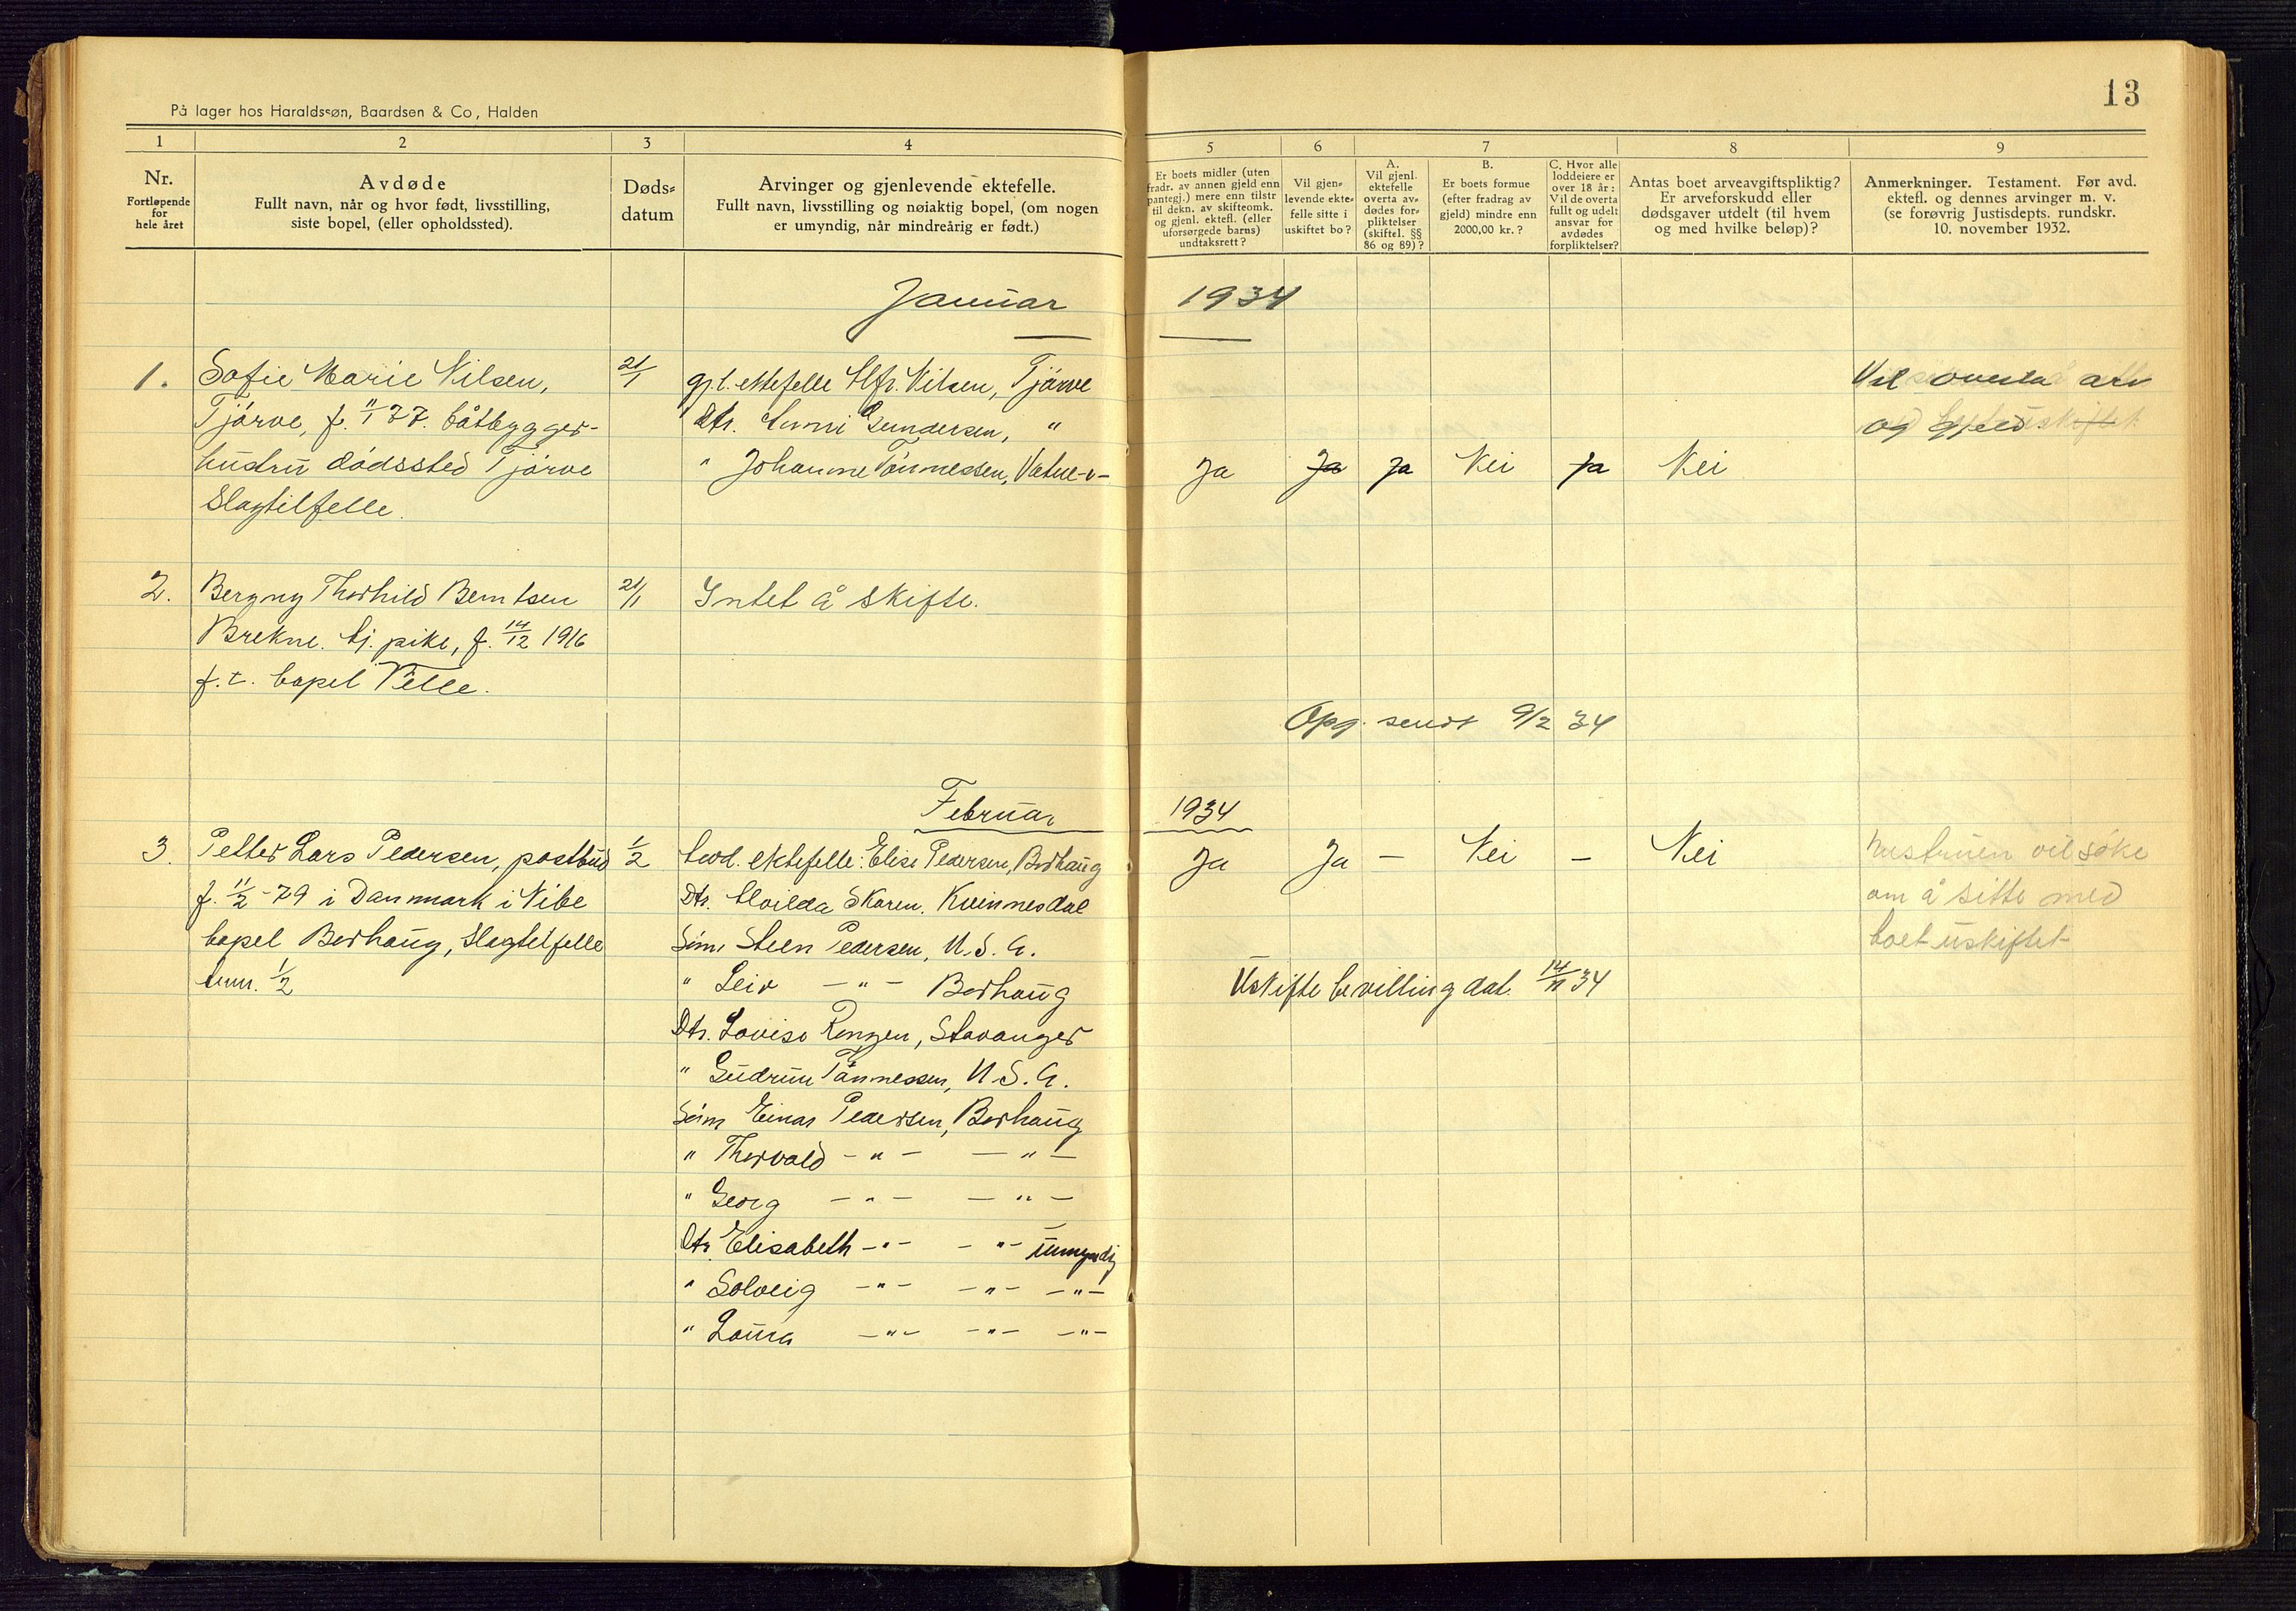 13
På lager hos Haraldssøn, Baardsen & Co, Halden
1 2 3 4 5 6 7 8 9
Nr.
Fortløpende
for
hele året
Avdøde
Fullt navn, når og hvor født, livsstilling,
siste bopel, (eller opholdssted).
Døds-
datum
Arvinger og gjenlevende ektefelle.
Fullt navn, livsstilling og nøiaktig bopel, (om nogen
er umyndig, når mindreårig er født.)
Er boets midler (uten
fradr. av annen gjeld enn
pantegj.) mere enn tilstr
til dekn. av skifteomk.
og gjenl. ektefl. (eller
uforsørgede barns)
undtaksrett?
Vil gjen-
levende ekte-
felle sitte i
uskiftet bo?
A.
Vil gjenl.
ektefelle
overta av-
dødes for-
pliktelser
(skiftel. §§
86 og 89)?
B.
Er boets formue
(efter fradrag av
gjeld) mindre enn
2000,00 kr.?
C. Hvor alle
loddeiere er
over 18 år:
Vil de overta
fullt og udelt
ansvar for
avdødes
forpliktelser?
Antas boet arveavgiftspliktig?
Er arveforskudd eller
dødsgaver utdelt (til hvem
og med hvilke beløp)?
Anmerkninger. Testament. Før avd.
ektefl. og dennes arvinger m. v.
(se forøvrig Justisdepts. rundskr.
10. november 1932.
Januar 1934
1. Sofie Marie Nilsen, 21/1 gj.l. ektefelle Alfr. Nilsen, Tjörve Vil overta arv
Tjörve, f. 11/1 77. båtbygger- Dtr. Gundersen, " og gjeld
hustru dödssted Tjörve " Johanne Tönnessen, Ja Ja Ja Nei Ja Nei
Slagtilfelle.
2. Bergny Thorhild Berntsen 21/1 Intet å skifte.
Brekne. tj. pike, f. 14/12 1916
f.t. bopel Velle.
Opg. sendt 9/2 34
Februar 1934
3. Petter Lars Pedersen, postbud 1/2 ektefelle: Elise Pedersen, Borhaug Ja Ja – Nei – Nei Hustruen vil söke
f. 11/2 -79 i Danmark i Nibe Dtr. Alvilda Skaren, Kvinnesdal om å sitte med
bopel Borhaug, Slagtilfelle Sönn Steen Pedersen, U.S.A. boet uskiftet
1/2 " Leiv – " – Borhaug Uskiftebevilling dat. 34
Dtr. Lovise, Stavanger
" Gudrun Tönnessen, U.S.A.
Sönn Einar Pedersen, Borhaug
" Thorvald – " – – " –
" Georg – " – – " –
Dtr. Elisabeth – " – – " – umyndig
" Solveig – " – – " – – " –
" Laura – " – – " – – " –